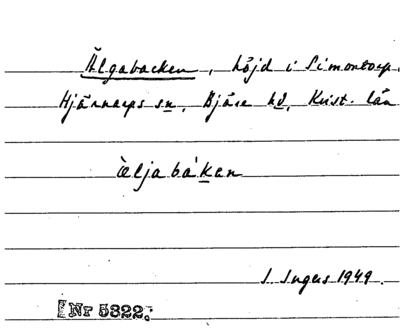 Älgabacken, höjd i Simontorp.
Hjärnarps sn, Bjäre hd, Krist. län
èljabákan
I. Ingers 1949.
[Nr 5322.